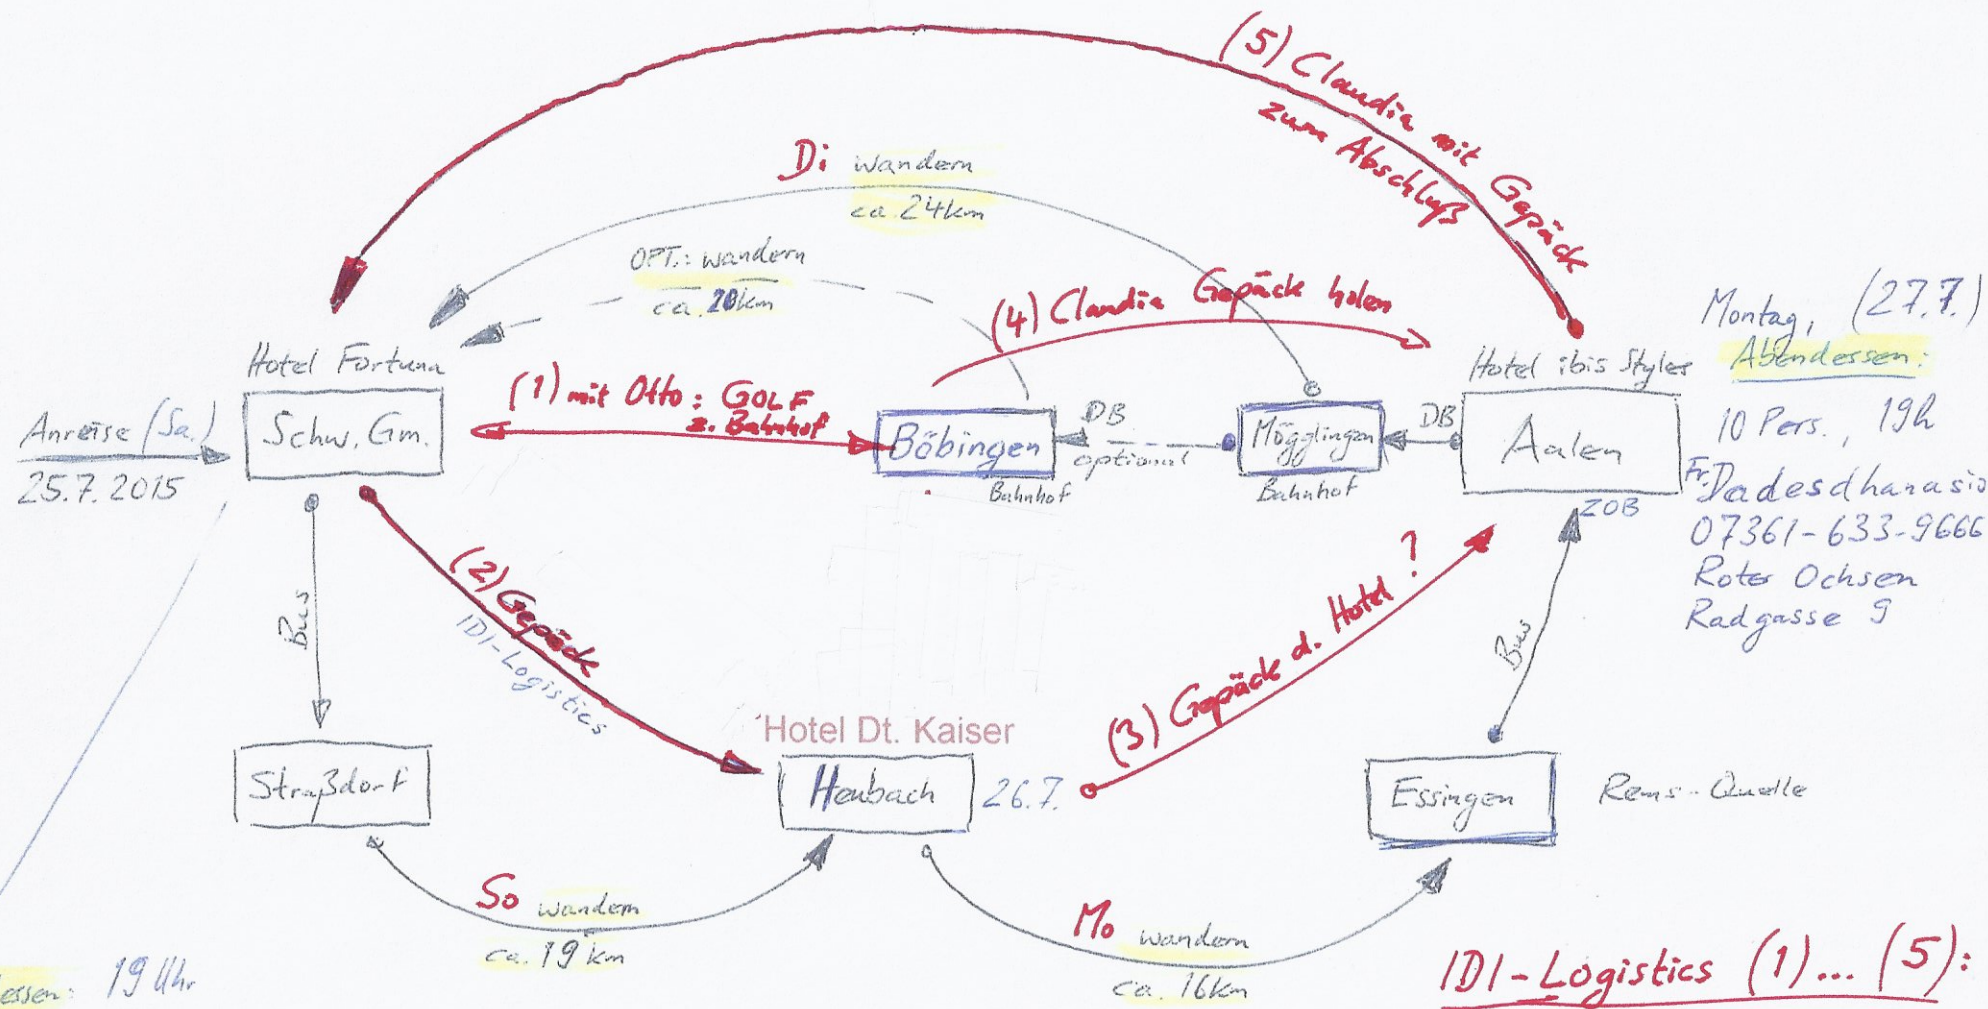 (5) Claudia mit Gepäck
zum Abschluß
Di wandern
ca. 24km
OPT.: wandern
ca. 20km
(4) Claudia Gepäck holen
Montag, (27.7.)
Abendessen:
10 Pers., 19h
Fr.
07361-633-9666
Roter Ochsen
Radgasse 9
Hotel Fortuna
Schw. Gm.
Anreise (Sa.)
25.7.2015
(1) mit Otto: GOLF
z. Bahnhof
Böbingen
Bahnhof
DB
optional
Mögglingen
Bahnhof
DB
Hotel ibis Styles
Aalen
ZOB
Bus
(2) Gepäck
IDI-Logistics
(3) Gepäck d. Hotel ?
Bus
Straßdorf
Hotel Dt. Kaiser
Heubach
26.7.
Essingen
Rems-Quelle
So wandern
ca. 19 km
Mo wandern
ca. 16km
essen: 19 Uhr
IDI-Logistics (1)... (5):